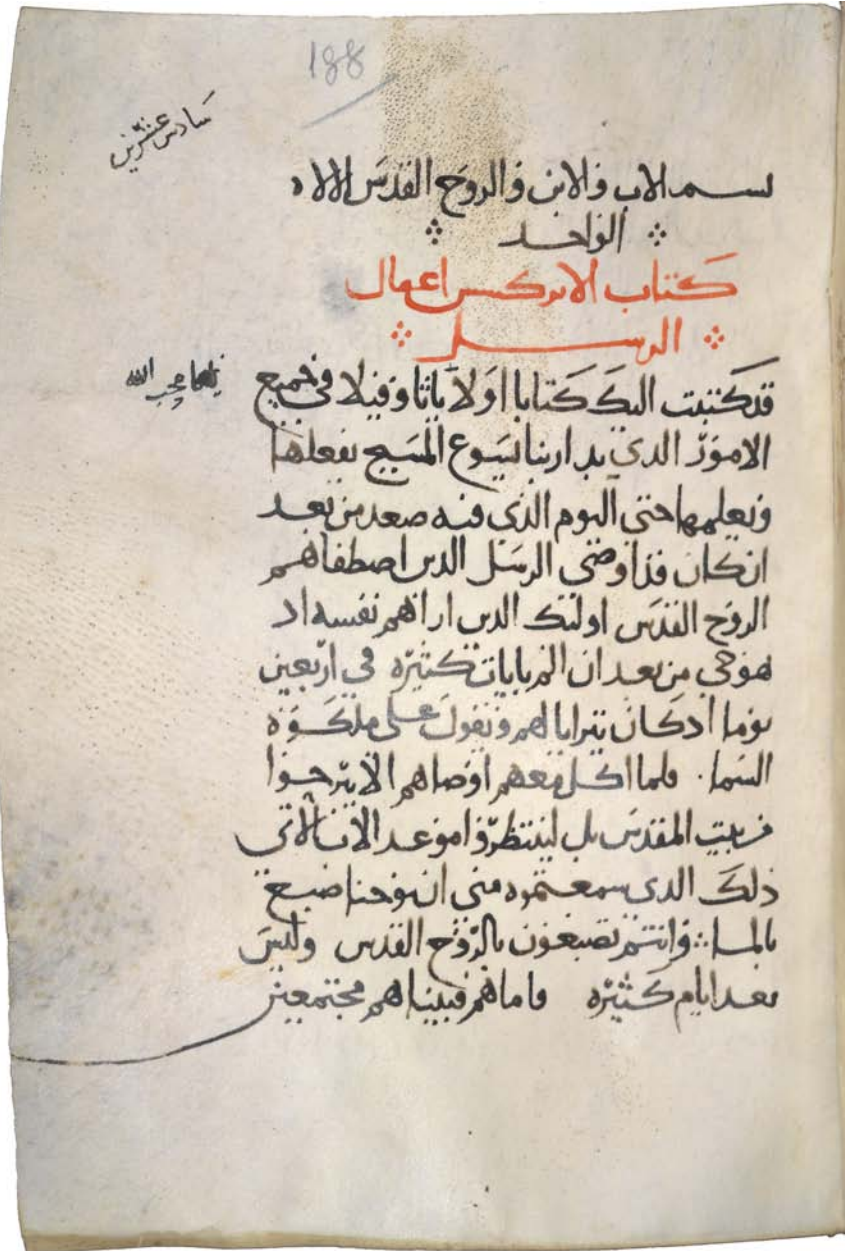 188
سادس عشرين
بسم الاب والابن والروح القدس الالاه
الواحد
كتاب الابركسس اعمال
الرسل
قد كتبت اليك كتابا اولا ياثاوفيلا في جميع
الامور الذي بدا ربنا يسوع المسيح بفعلها
وتعليمها حتى اليوم الذي فيه صعد من بعد
ان كان قد اوصى الرسل الدين اصطفاهم
الروح القدس اولئك الدين اراهم نفسه اد
هو حي من بعد ان الم بايات كثيره في اربعين
يوما ادكان يترايا لهم ويقول على ملكوه
السما . فلما اكل معهم اوصاهم الا يبرحوا
من بيت المقدس بل لينتظروا موعد الاب الاتي
ذلك الدي سمعتموه مني ان يوحنا صبغ
بالما وانتم تصبغون بالروح القدس وليس
بعد ايام كثيره فاما هم فبينا هم مجتمعين
يامحب الله